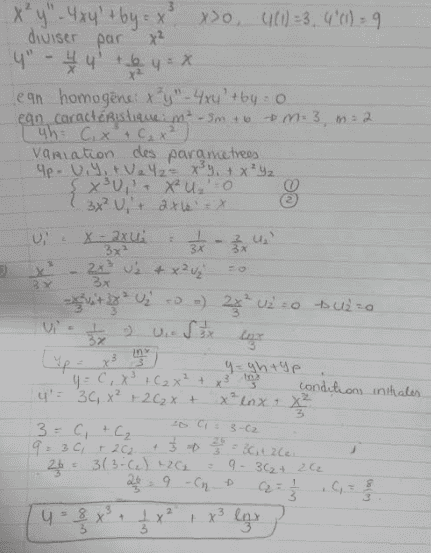 x² y" - 4xy' + 6y = x³, x>0, y(1)=3, y'(1)=9
diviser par x²
y" - 4/x y' + 6/x² y = x
eqn homogène: x²y" - 4xy' + 6y = 0
eqn caractéristique: m² - 5m + 6 → m=3, m=2
yh = C₁x³ + C₂x²
variation des parametres
yp = U₁y₁ + U₂y₂ = x³y₁ + x²y₂
{ x³U₁' + x²U₂' = 0 ①
{ 3x²U₁' + 2xU₂' = x ②
U₁' = x - 2xU₂' / 3x² = 1/3x - 2/3x U₂'
x³/3x - 2x³/3x U₂' + x²U₂' = 0
=> 2x²/3 U₂' = 0 → U₂' = 0
U₁' = 1/3x => U₁ = ∫ 1/3x lnx/3
yp = x³ lnx/3 y = yh + yp
y = C₁x³ + C₂x² + x³ lnx/3 conditions initiales
y' = 3C₁x² + 2C₂x + x² lnx + x²/3
3 = C₁ + C₂ => C₁ = 3-C₂
9 = 3C₁ + 2C₂ + 1/3 => 26/3 = 3C₁ + 2C₂
26/3 = 3(3-C₂) + 2C₂ = 9 - 3C₂ + 2C₂
26/3 = 9 - C₂ → C₂ = 1/3, C₁ = 8/3
y = 8/3 x³ + 1/3 x² + x³ lnx/3